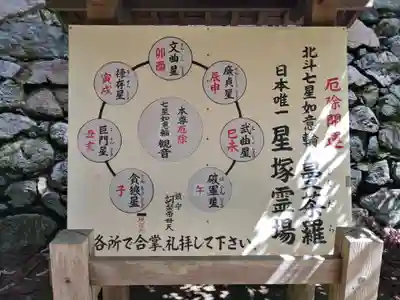 厄除開運
北斗七星如意輪
曼荼羅
日本唯一
星塚霊場
文曲星
卯酉
廉貞星
辰申
武曲星
巳未
破軍星
午
禄存星
寅戌
巨門星
丑亥
貪狼星
子
本尊厄除
七星如意輪
観音
鎮守
訶梨帝母天
各所で合掌、礼拝して下さい